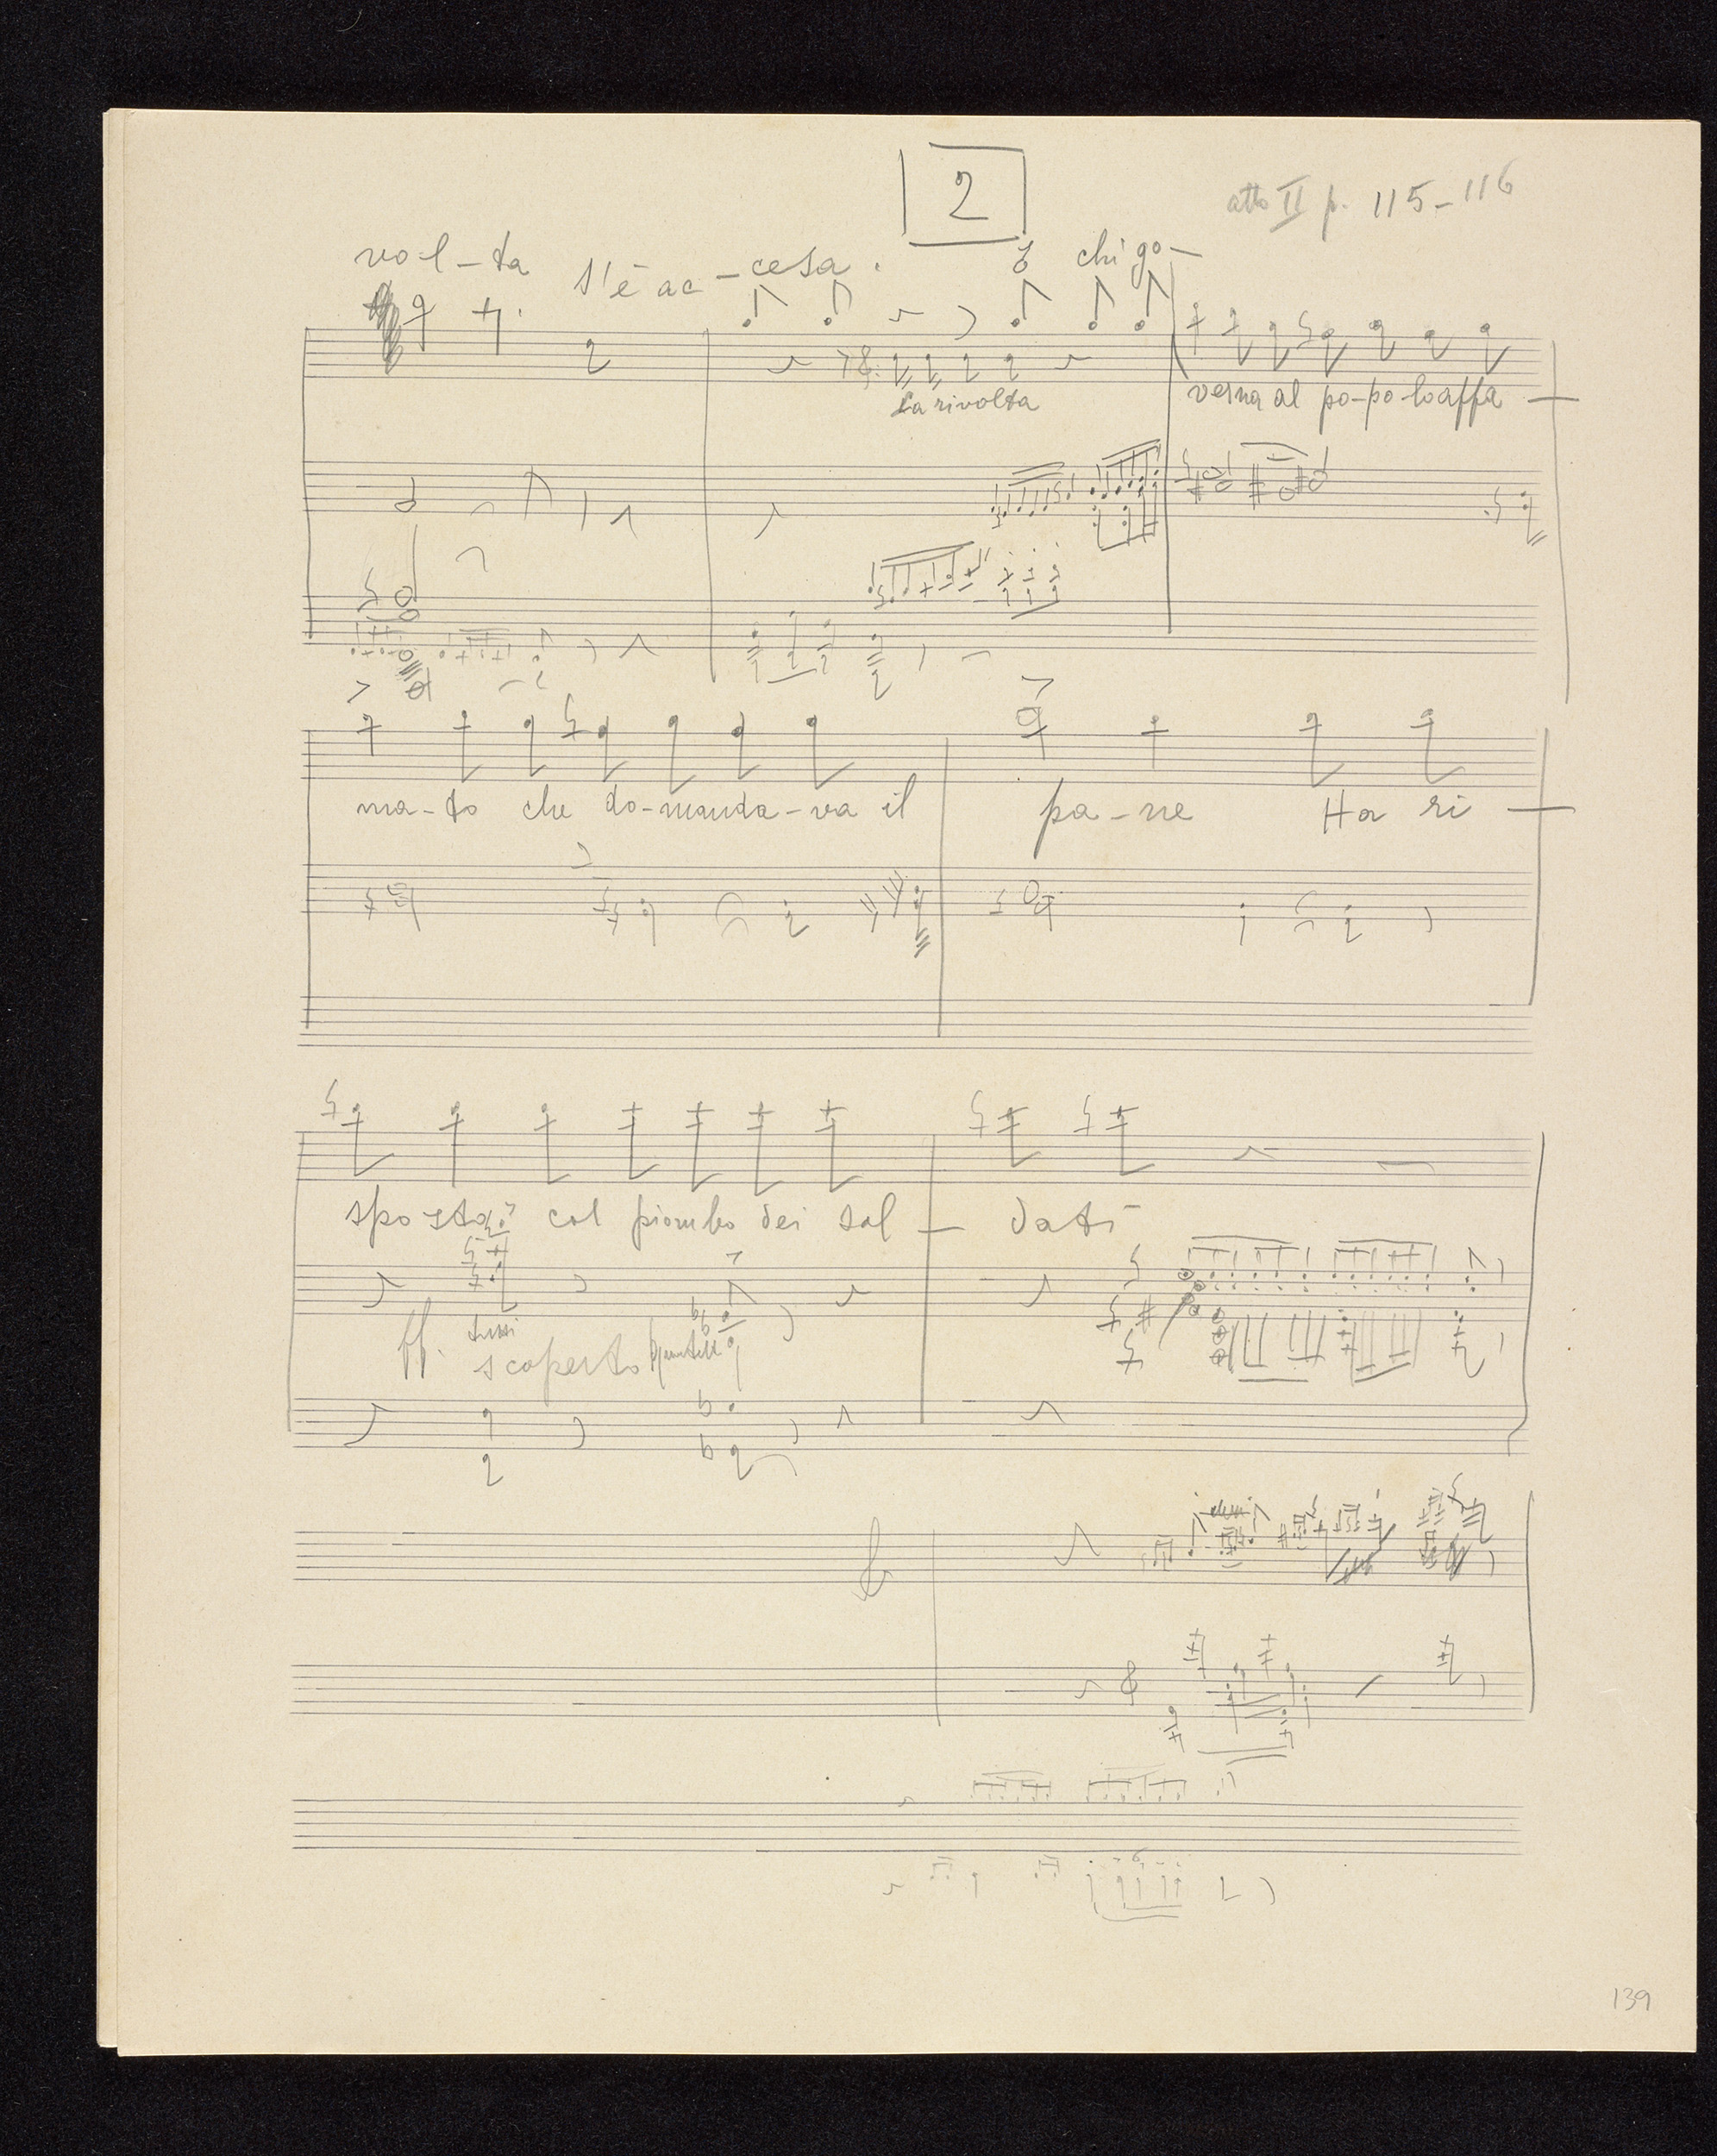 2
atto II p. 115-116
vo-l-ta s'è ac-cesa. E chi go-
La rivolta
verna al po-po-lo affa-
ma-to che do-manda-va il pa-ne Ha ri-
sposto col piombo dei sol-dati
ff. tutti
scoperto
139